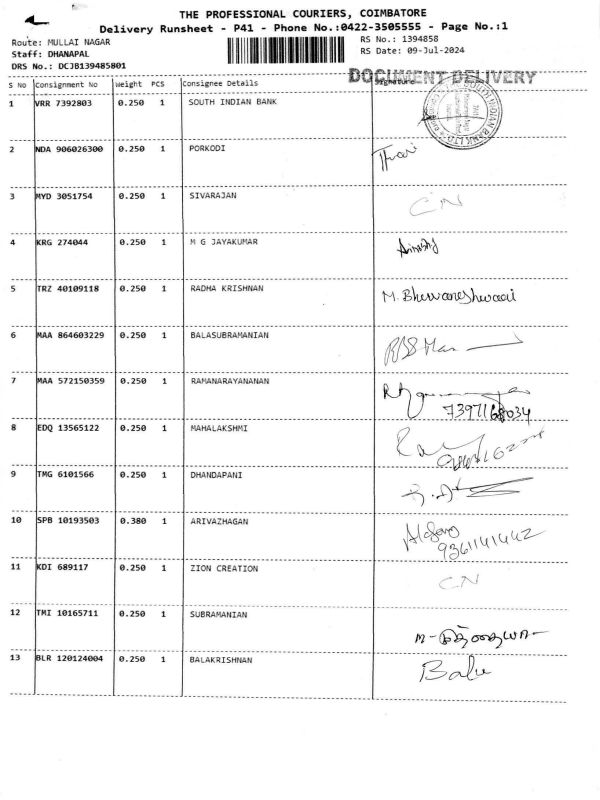 THE PROFESSIONAL COURIERS, COIMBATORE
Delivery Runsheet - P41 - Phone No.:0422-3505555 - Page No.:1
Route: MULLAI NAGAR
RS No.: 1394858
Staff: DHANAPAL
RS Date: 09-Jul-2024
DRS No.: DCJB139485801
DOCUMENT DELIVERY
S No Consignment No Weight PCS Consignee Details Signature
1 VRR 7392803 0.250 1 SOUTH INDIAN BANK
SOUTH INDIAN BANK LTD
2 NDA 906026300 0.250 1 PORKODI
3 MYD 3051754 0.250 1 SIVARAJAN CN
4 KRG 274044 0.250 1 M G JAYAKUMAR
5 TRZ 40109118 0.250 1 RADHA KRISHNAN M. Bhuvaneshwari
6 MAA 864603229 0.250 1 BALASUBRAMANIAN
7 MAA 572150359 0.250 1 RAMANARAYANANAN
7397168034
8 EDQ 13565122 0.250 1 MAHALAKSHMI
9 TMG 6101566 0.250 1 DHANDAPANI
10 SPB 10193503 0.380 1 ARIVAZHAGAN
9361141442
11 KDI 689117 0.250 1 ZION CREATION CN
12 TMI 10165711 0.250 1 SUBRAMANIAN
13 BLR 120124004 0.250 1 BALAKRISHNAN Balu